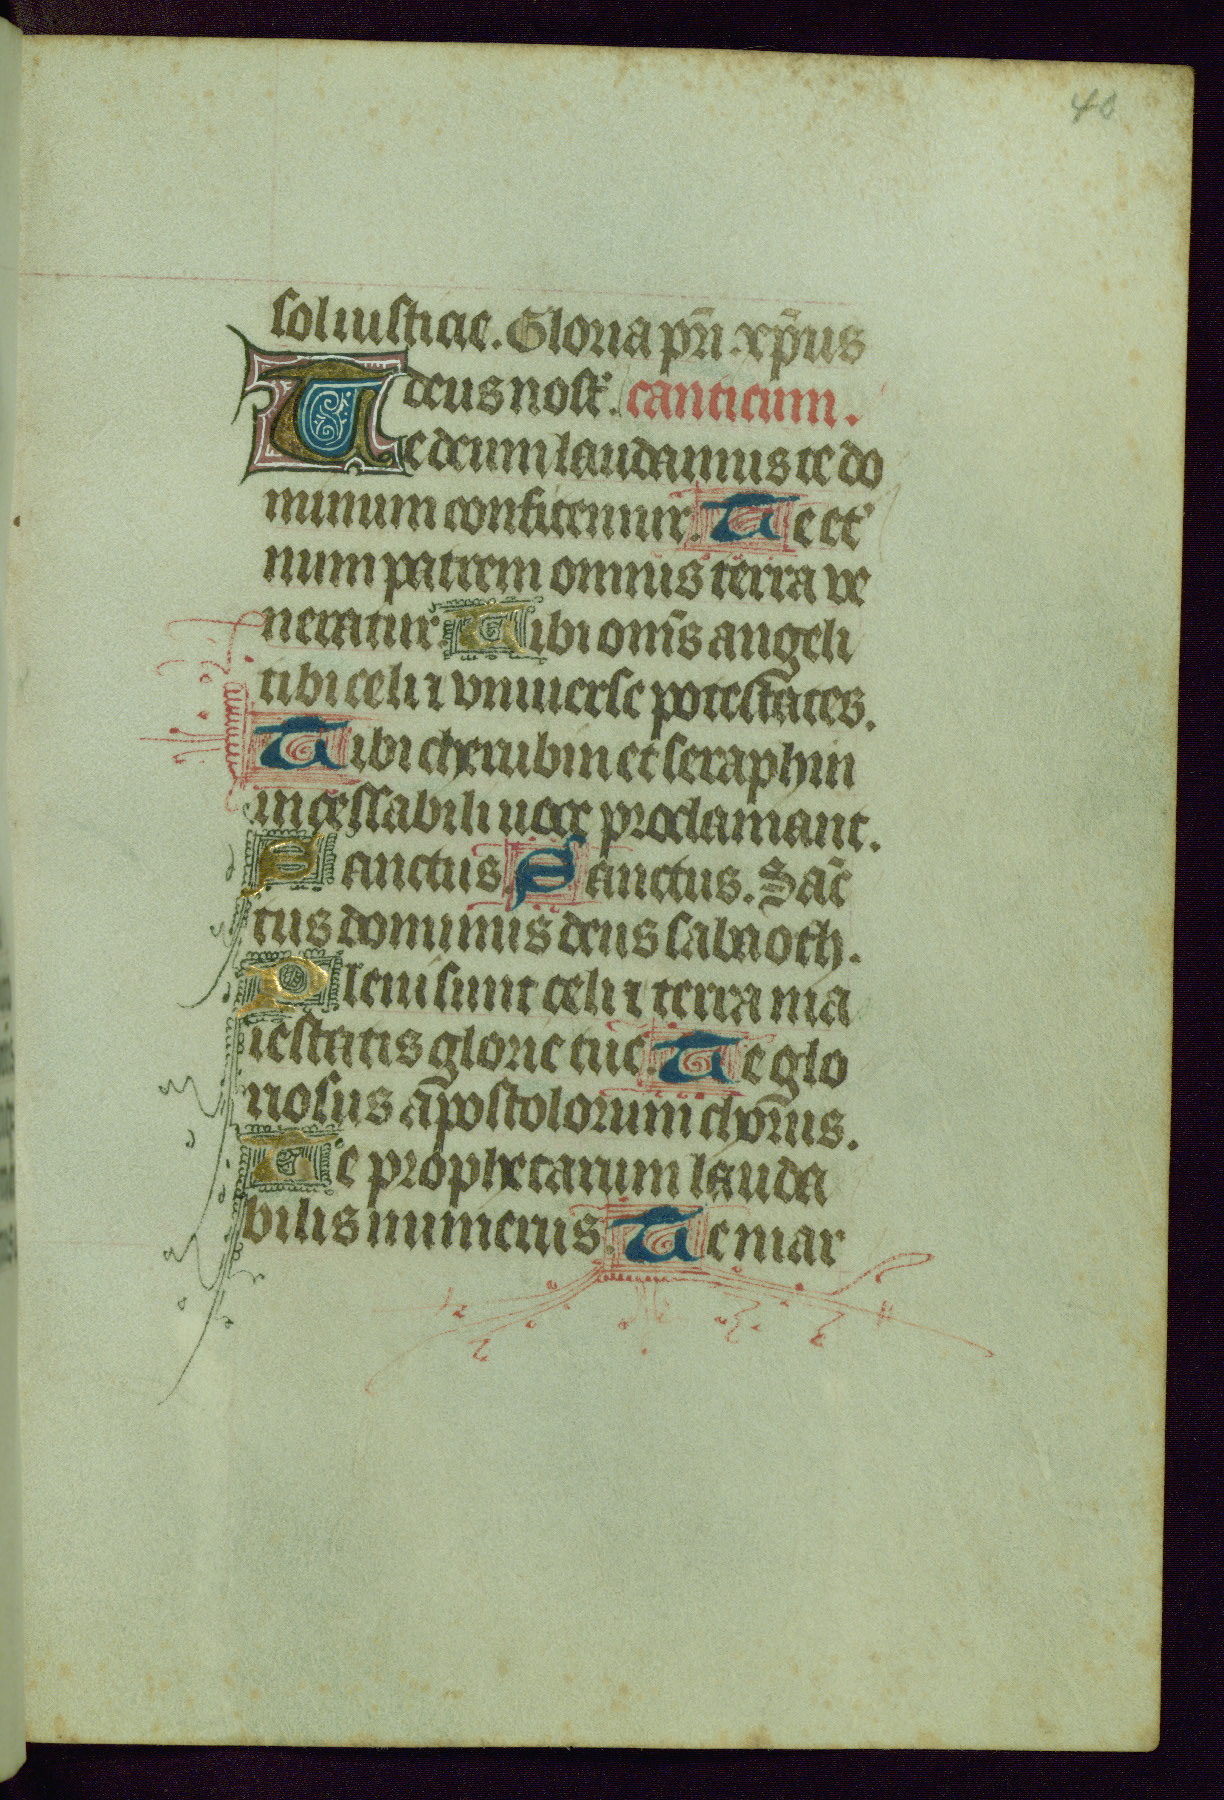 40
sol iusticie. Gloria pr̄i. xp̄us
deus nost̄. canticum.
Te deum laudamus te do
minum confitemur. Te et᷒
num patrem omnis terra ve
neratur. Tibi om̄s angeli
tibi celi ⁊ vniuerse potestates.
Tibi cherubin et seraphin
incessabili uoce proclamant.
Sanctus. Sanctus. Sāc
tus dominus deus sabaoth.
Pleni sunt celi ⁊ terra ma
iestatis glorie tue. Te glo
riosus apostolorum chorus.
Te prophetarum lauda
bilis numerus. Te mar